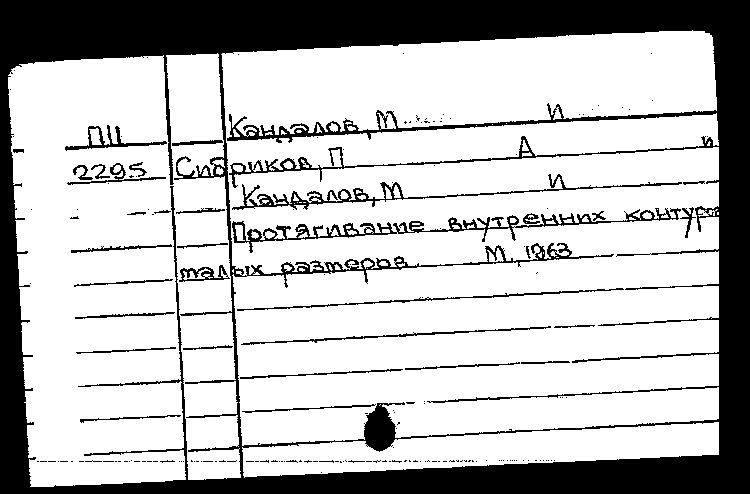 П11 Кандалов, М И
2295 Сибриков, П А и
Кандалов, М И
Протягивание внутренних контуров
малых размеров. М., 1963